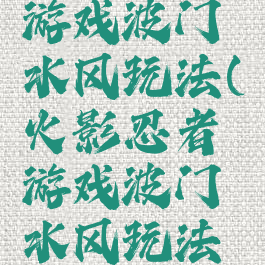 游戏波门
水风玩法(
火影忍者
游戏波门
水风玩法